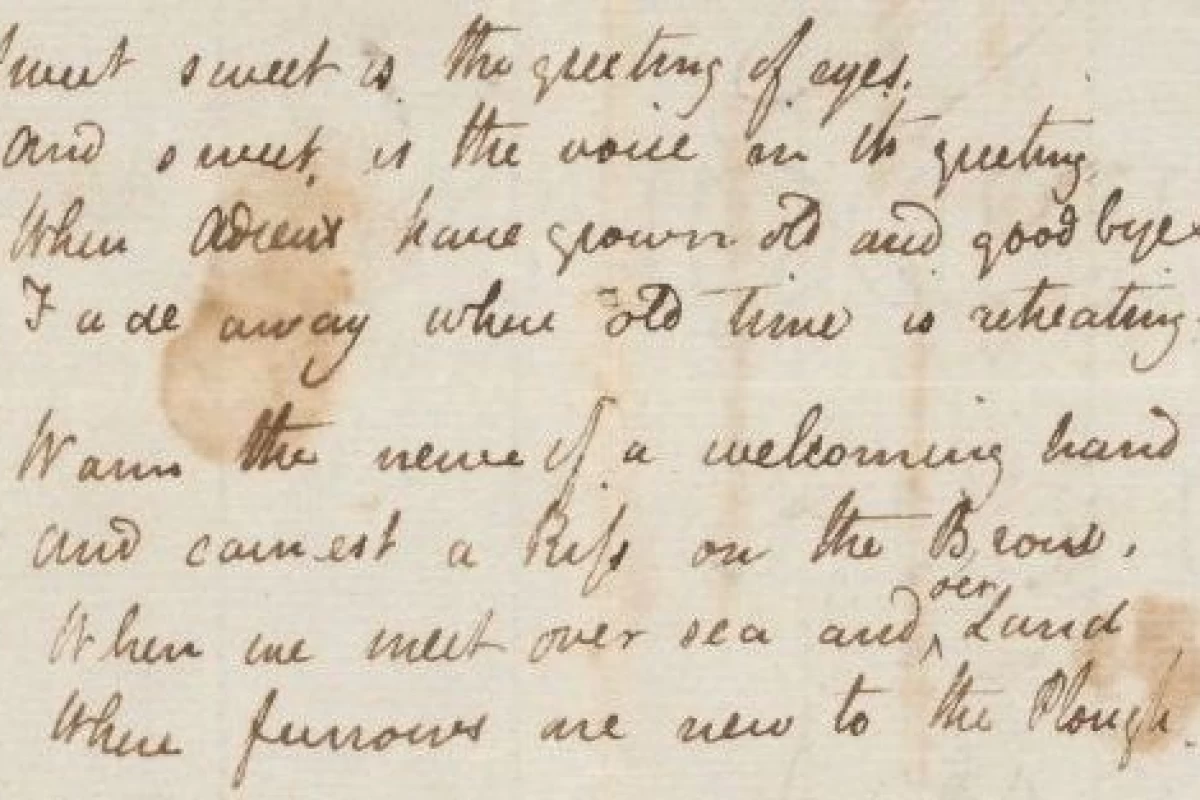 Sweet sweet is the greeting of eyes,
and sweet is the voice in its greeting,
When Adieux have grown old and goodbyes
Fade away where old time is retreating
Warm the nerve of a welcoming hand
and earnest a Kiss on the Brow,
When we meet over sea and o'er Land
Where furrows are new to the Plough.